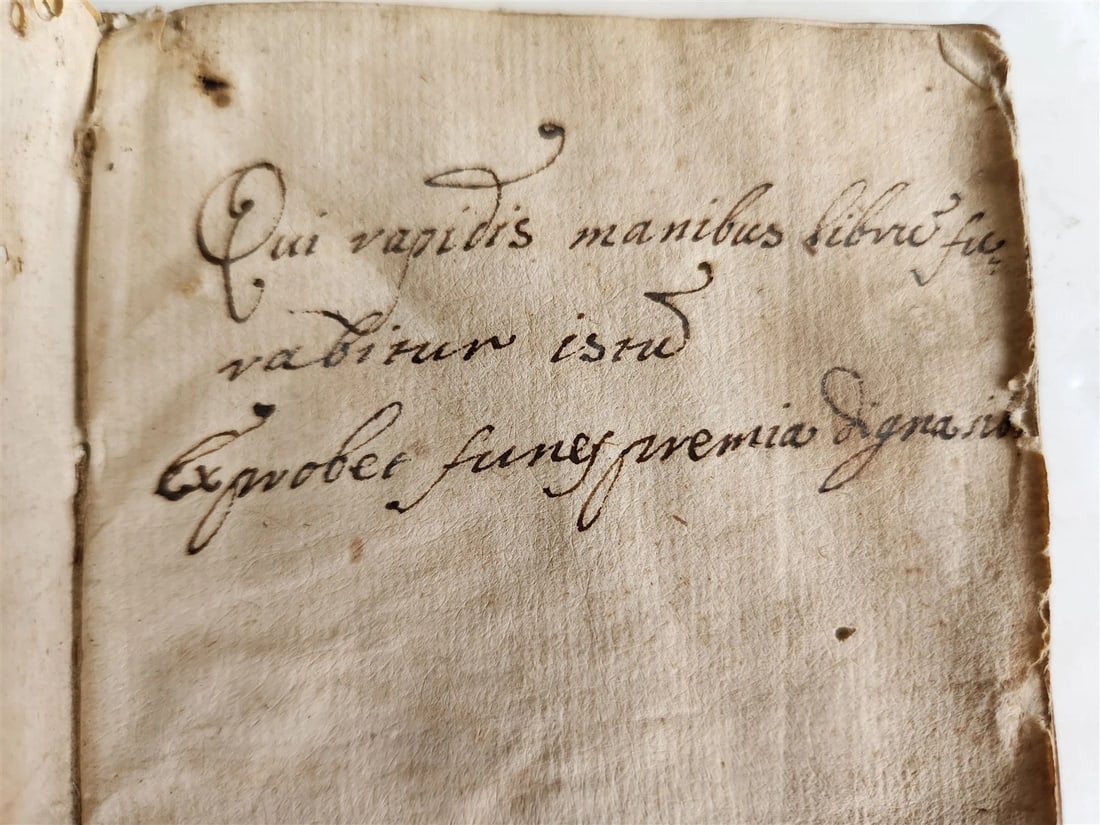 Qui rapidis manibus librū fu-
rabitur istū
Exprobet funes premia digna sibi